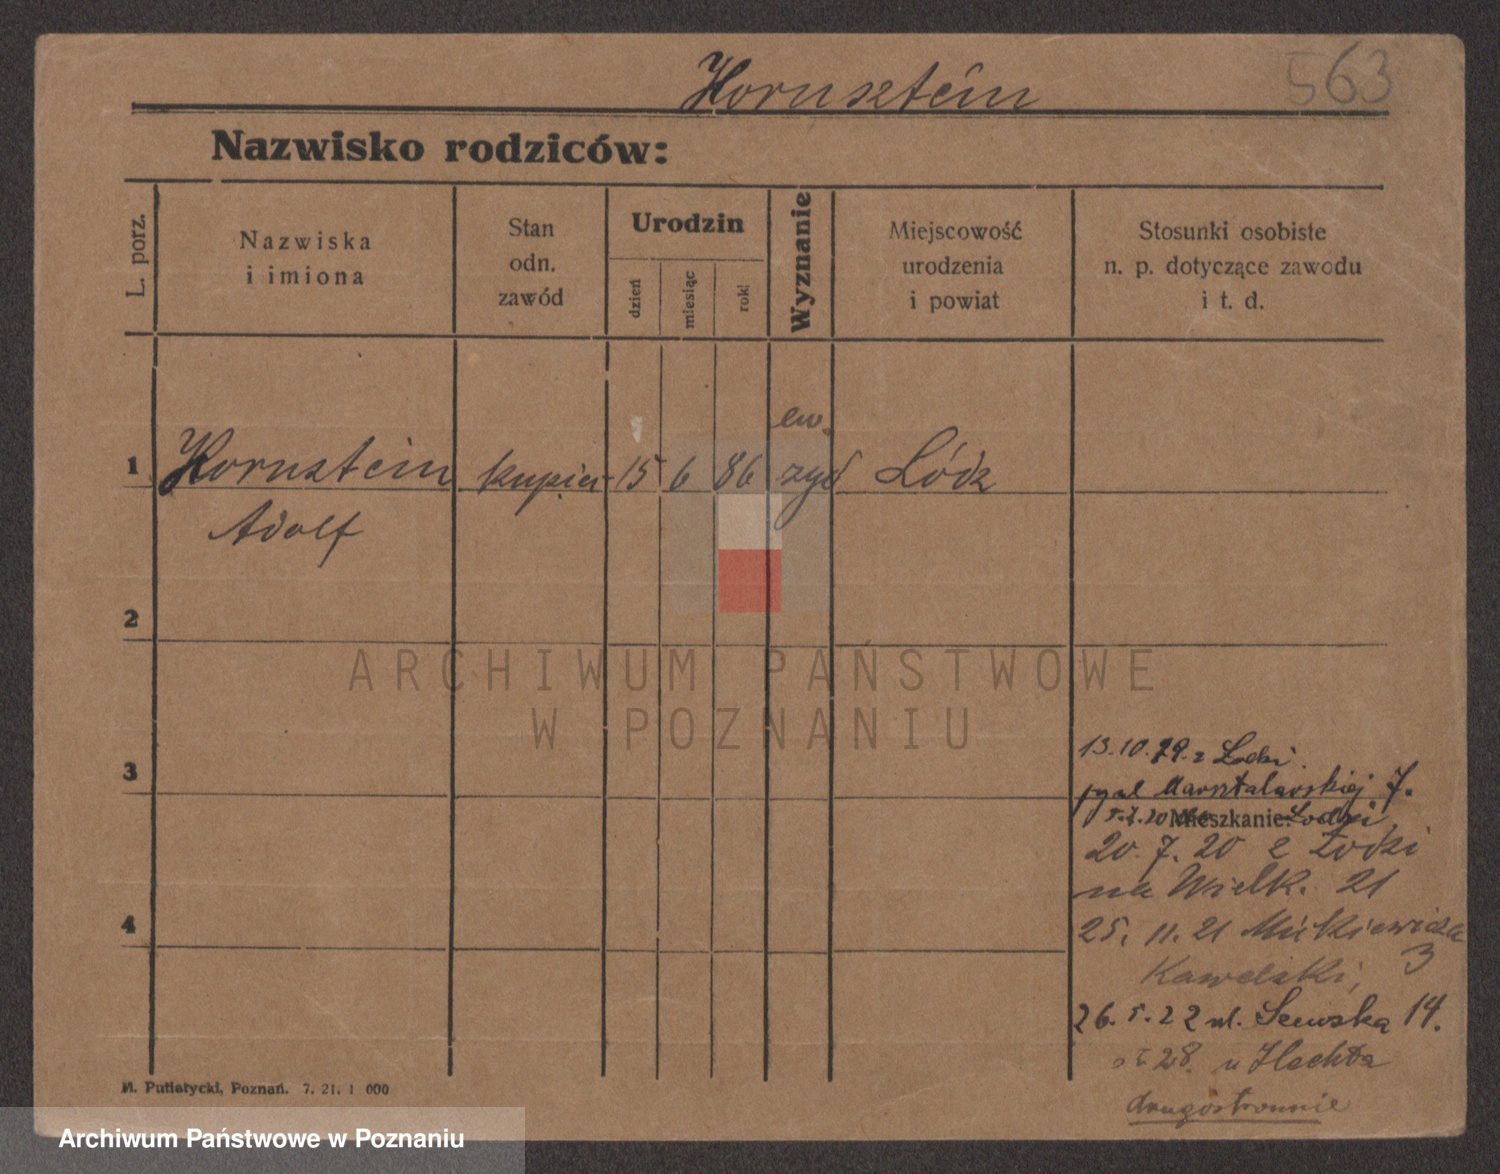 563
Hornsztein
Nazwisko rodziców:
L. porz.
Nazwiska
i imiona
Stan
odn.
zawód
Urodzin
dzień
miesiąc
rok
Wyznanie
Miejscowość
urodzenia
i powiat
Stosunki osobiste
n. p. dotyczące zawodu
i t. d.
ew.
1 Hornsztein kupiec 15 6 86 żyd Łódz
Adolf
2
ARCHIWUM PAŃSTWOWE
W POZNANIU
3
13.10.19. z Łodzi.
Marsztalarskiej 7.
5.2.20 Mieszkanie: Łodzi
20. 7. 20 z Łodzi
na Wielk. 21
4
25. 11. 21 Mickiewicza
3
Kawelski,
26. 5. 22 ul. Szewska 14.
28. u Flechta
drugostronnie
M. Putiatycki, Poznań. 7. 21. 1 000
Archiwum Państwowe w Poznaniu